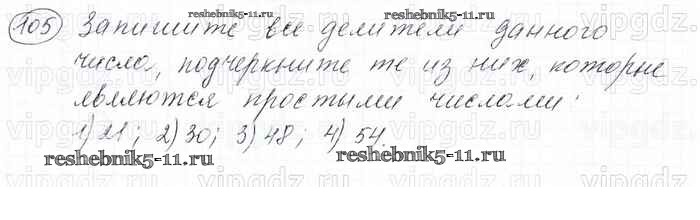 105 Запишите все делители данного
числа, подчеркните те из них, которые
являются простыми числами:
1) 21; 2) 30; 3) 48; 4) 54.
reshebnik5-11.ru
reshebnik5-11.ru
reshebnik5-11.ru
reshebnik5-11.ru